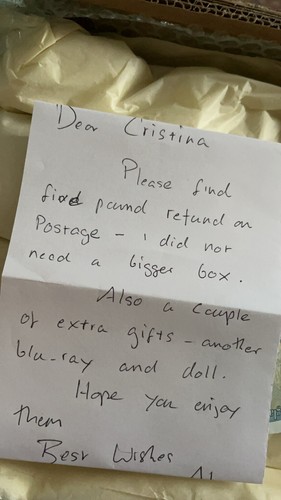 Dear Cristina
Please find
five pound refund on
Postage - I did not
need a bigger box.
Also a couple
of extra gifts - another
blu-ray and doll.
Hope you enjoy
them
Best Wishes